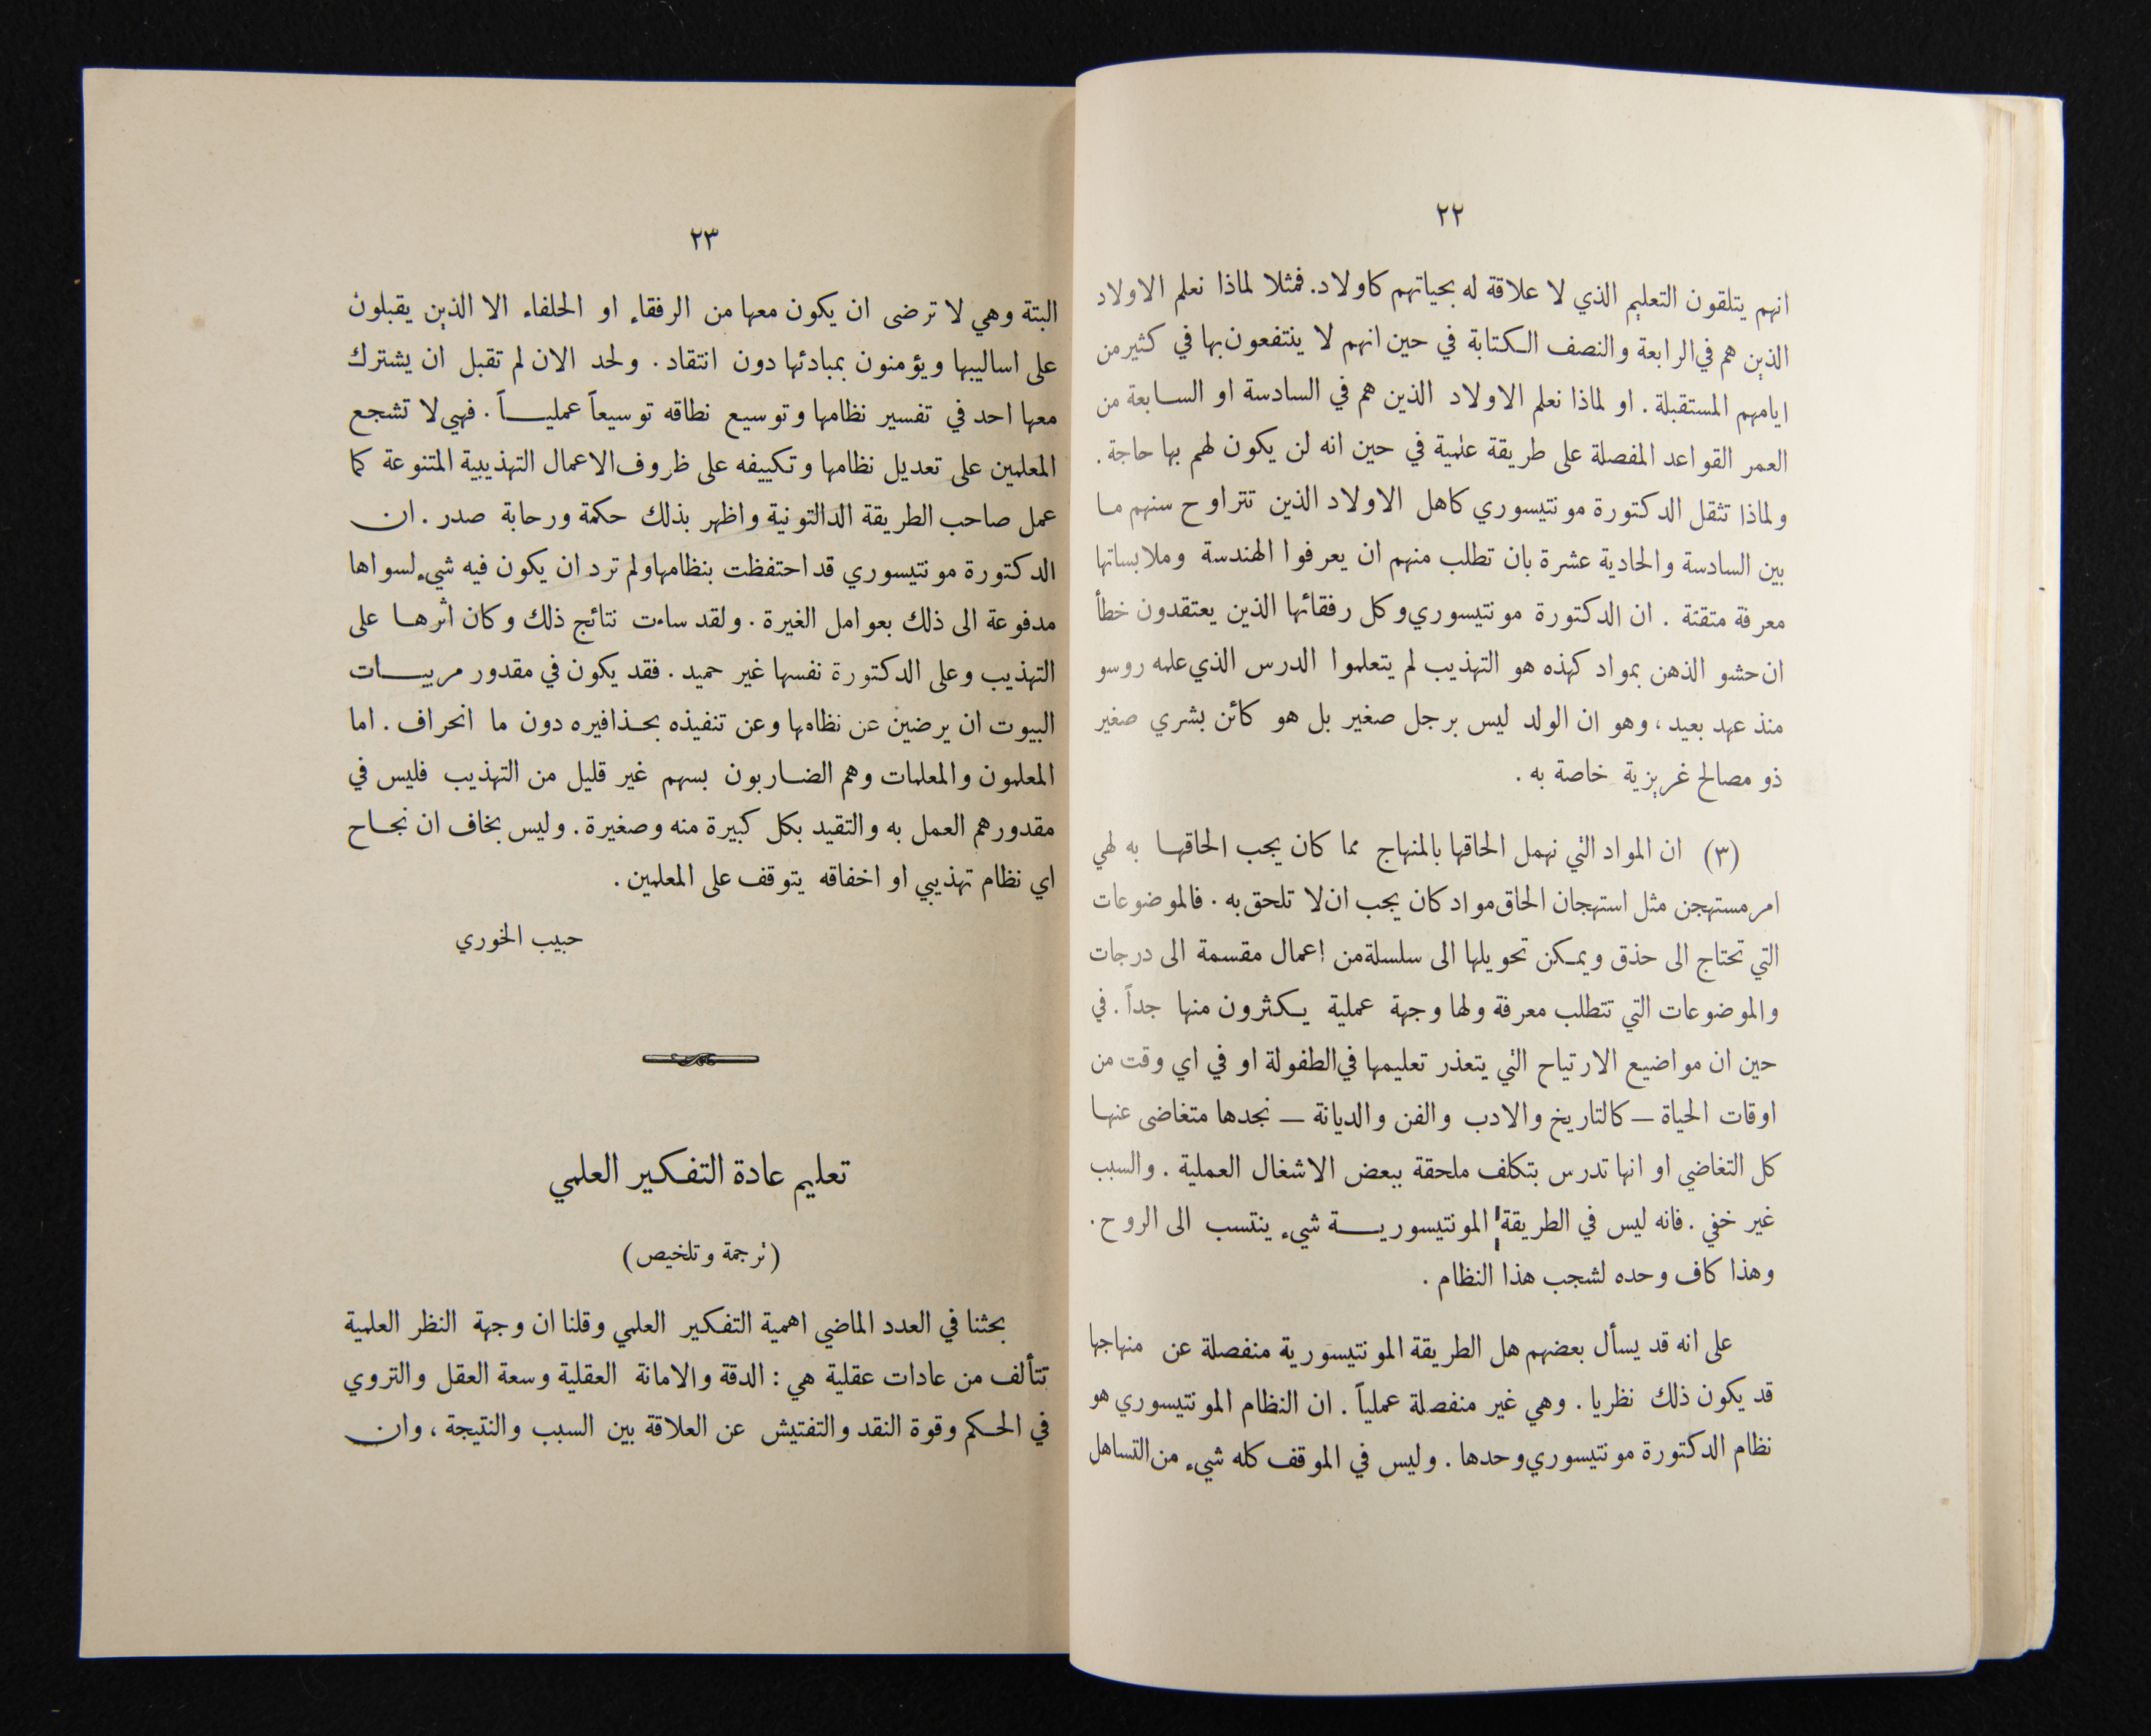 ٢٢
انهم يتلقون التعليم الذي لا علاقة له بحياتهم كاولاد. فمثلا لماذا نعلم الاولاد
الذين هم في الرابعة والنصف الكتابة في حين انهم لا ينتفعون بها في كثير من
ايامهم المستقبلة . او لماذا نعلم الاولاد الذين هم في السادسة او السابعة من
العمر القواعد المفصلة على طريقة علمية في حين انه لن يكون لهم بها حاجة .
ولماذا تثقل الدكتورة مونتيسوري كاهل الاولاد الذين تتراوح سنهم ما
بين السادسة والحادية عشرة بان تطلب منهم ان يعرفوا الهندسة وملابساتها
معرفة متقنة . ان الدكتورة مونتيسوري وكل رفقائها الذين يعتقدون خطأ
ان حشو الذهن بمواد كهذه هو التهذيب لم يتعلموا الدرس الذي علمه روسو
منذ عهد بعيد ، وهو ان الولد ليس برجل صغير بل هو كائن بشري صغير
ذو مصالح غريزية خاصة به .
(٣) ان المواد التي نهمل الحاقها بالمنهاج مما كان يجب الحاقها به لهي
امر مستهجن مثل استهجان الحاق مواد كان يجب ان لا تلحق به . فالموضوعات
التي تحتاج الى حذق ويمكن تحويلها الى سلسلة من اعمال مقسمة الى درجات
والموضوعات التي تتطلب معرفة ولها وجهة عملية يكثرون منها جداً . في
حين ان مواضيع الارتياح التي يتعذر تعليمها في الطفولة او في اي وقت من
اوقات الحياة — كالتاريخ والادب والفن والديانة — نجدها متغاضى عنها
كل التغاضي او انها تدرس بتكلف ملحقة ببعض الاشغال العملية . والسبب
غير خفي . فانه ليس في الطريقة المونتيسورية شيء ينتسب الى الروح .
وهذا كاف وحده لشجب هذا النظام .
على انه قد يسأل بعضهم هل الطريقة المونتيسورية منفصلة عن منهاجها
قد يكون ذلك نظريا . وهي غير منفصلة عملياً . ان النظام المونتيسوري هو
نظام الدكتورة مونتيسوري وحدها . وليس في الموقف كله شيء من التساهل
٢٣
البتة وهي لا ترضى ان يكون معها من الرفقاء او الحلفاء الا الذين يقبلون
على اساليبها ويؤمنون بمبادئها دون انتقاد . ولحد الان لم تقبل ان يشترك
معها احد في تفسير نظامها وتوسيع نطاقه توسيعاً عملياً . فهي لا تشجع
المعلمين على تعديل نظامها وتكييفه على ظروف الاعمال التهذيبية المتنوعة كما
عمل صاحب الطريقة الدالتونية واظهر بذلك حكمة ورحابة صدر . ان
الدكتورة مونتيسوري قد احتفظت بنظامها ولم ترد ان يكون فيه شيء لسواها
مدفوعة الى ذلك بعوامل الغيرة . ولقد ساءت نتائج ذلك وكان اثرها على
التهذيب وعلى الدكتورة نفسها غير حميد . فقد يكون في مقدور مربيات
البيوت ان يرضين عن نظامها وعن تنفيذه بحذافيره دون ما انحراف . اما
المعلمون والمعلمات وهم الضاربون بسهم غير قليل من التهذيب فليس في
مقدورهم العمل به والتقيد بكل كبيرة منه وصغيرة . وليس بخاف ان نجاح
اي نظام تهذيبي او اخفاقه يتوقف على المعلمين .
حبيب الخوري
تعليم عادة التفكير العلمي
(ترجمة وتلخيص)
بحثنا في العدد الماضي اهمية التفكير العلمي وقلنا ان وجهة النظر العلمية
تتألف من عادات عقلية هي : الدقة والامانة العقلية وسعة العقل والتروي
في الحكم وقوة النقد والتفتيش عن العلاقة بين السبب والنتيجة ، وان